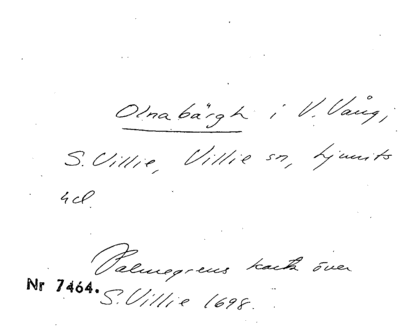 Olnabärgh i V. Vång,
S. Villie, Villie sn, Ljunits
hd.
Palmegrens karta över
Nr 7464.
S. Villie 1698.